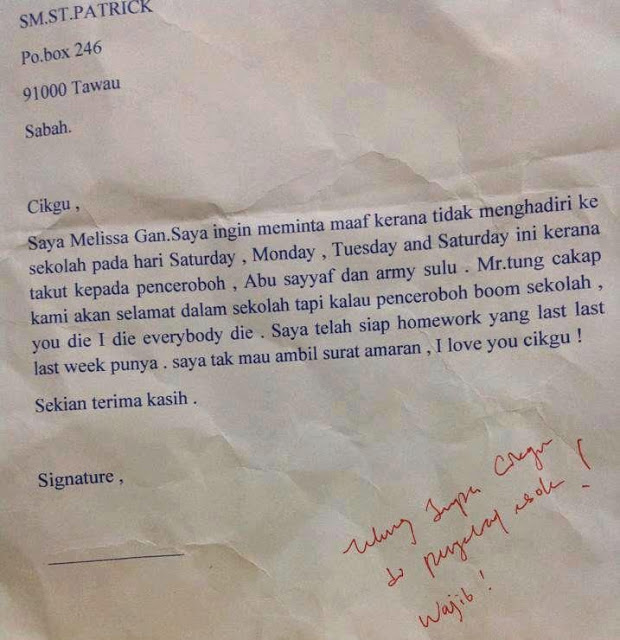 SM.ST.PATRICK
Po.box 246
91000 Tawau
Sabah.
Cikgu ,
Saya Melissa Gan.Saya ingin meminta maaf kerana tidak menghadiri ke
sekolah pada hari Saturday , Monday , Tuesday and Saturday ini kerana
takut kepada penceroboh , Abu sayyaf dan army sulu . Mr.tung cakap
kami akan selamat dalam sekolah tapi kalau penceroboh boom sekolah ,
you die I die everybody die . Saya telah siap homework yang last last
last week punya . saya tak mau ambil surat amaran , I love you cikgu !
Sekian terima kasih .
Signature ,
Tolong Jumpa Cikgu
di pejabat esok !
Wajib !